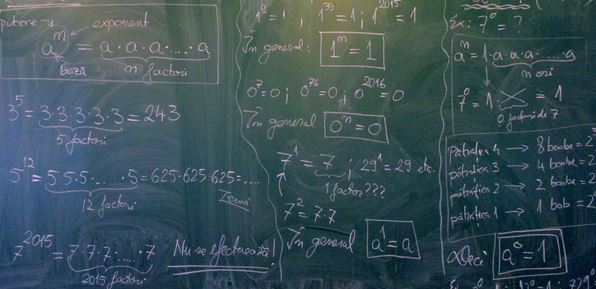 putere
exponent
aⁿ = a·a·a·....·a
bază
n factori
3⁵ = 3·3·3·3·3 = 243
5 factori
5¹² = 5·5·5·.....·5 = 625·625·625 = ....
12 factori
Temă
7²⁰¹⁵ = 7·7·7·.....·7
2015 factori
Nu se efectuează!
1⁹ = 1 ; 1³⁹ = 1 ; 1²⁰¹⁵ = 1
În general: 1ⁿ = 1
0⁷ = 0 ; 0⁷⁶ = 0 ; 0²⁰¹⁶ = 0
În general 0ⁿ = 0
7¹ = 7 ; 29¹ = 29 etc.
1 factor???
7² = 7·7
În general a¹ = a
Ex: 7⁰ = ?
aⁿ = 1·a·a·a·....·a
n ori
7⁰ = 1· = 1
0 factori de 7
pătrățica 4 → 8 boabe = 2
pătrățica 3 → 4 boabe = 2
pătrățica 2 → 2 boabe = 2
pătrățica 1 → 1 bob = 2
Deci a⁰ = 1